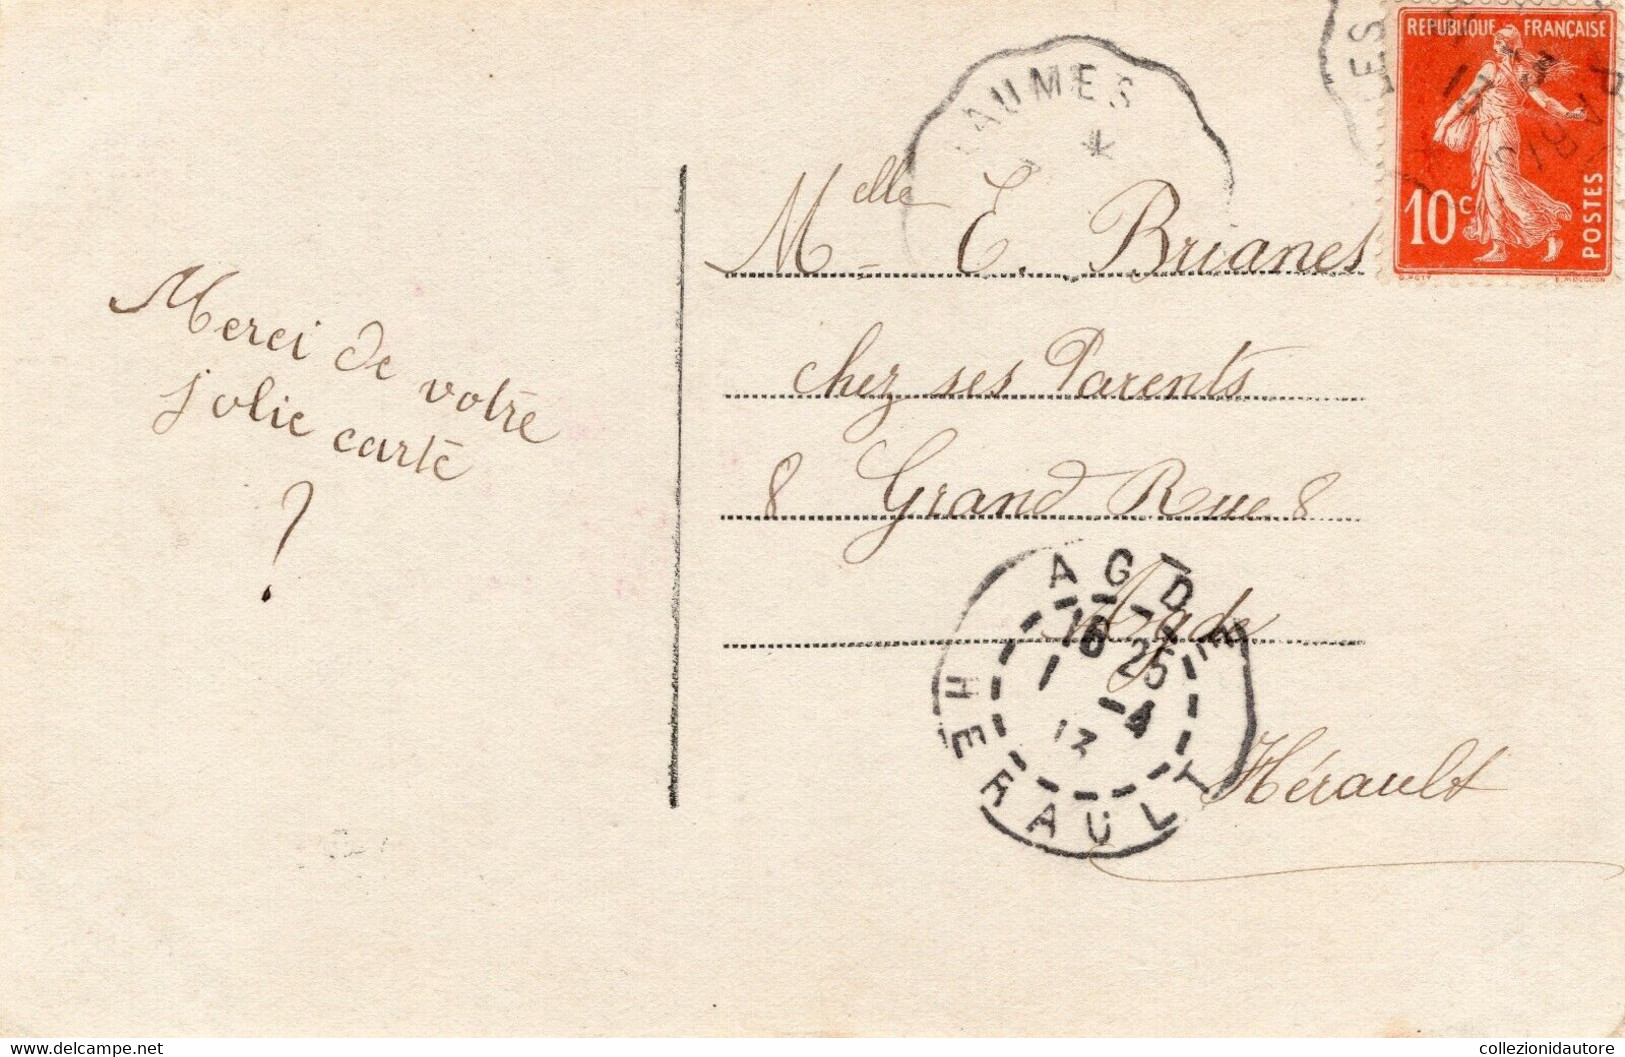 Merci de votre
jolie carte
?
AUMES
LES
REPUBLIQUE FRANÇAISE
10c
POSTES
Melle E. Brianes
chez ses Parents
8 Grand Rue 8
Agde
Hérault
AGDE
16 25
1 -4
13
HERAULT
Delcampe.net
collezionidautore